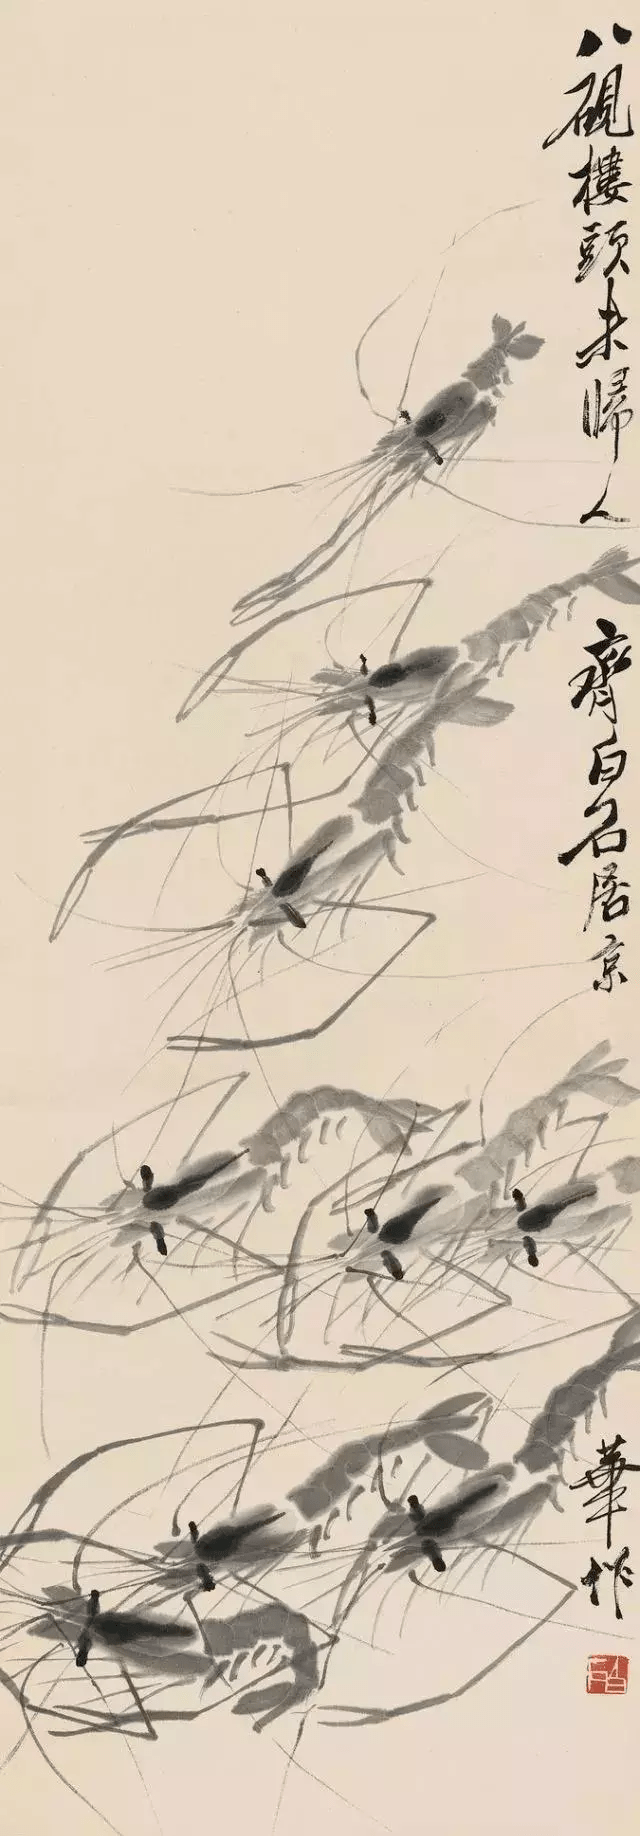 八硯樓頭未歸人
齊白石居京
華作
白石